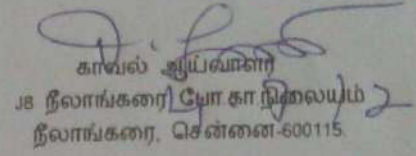 காவல் ஆய்வாளர்
J8 நீலாங்கரை போ.கா.நிலையம்
நீலாங்கரை, சென்னை-600115.